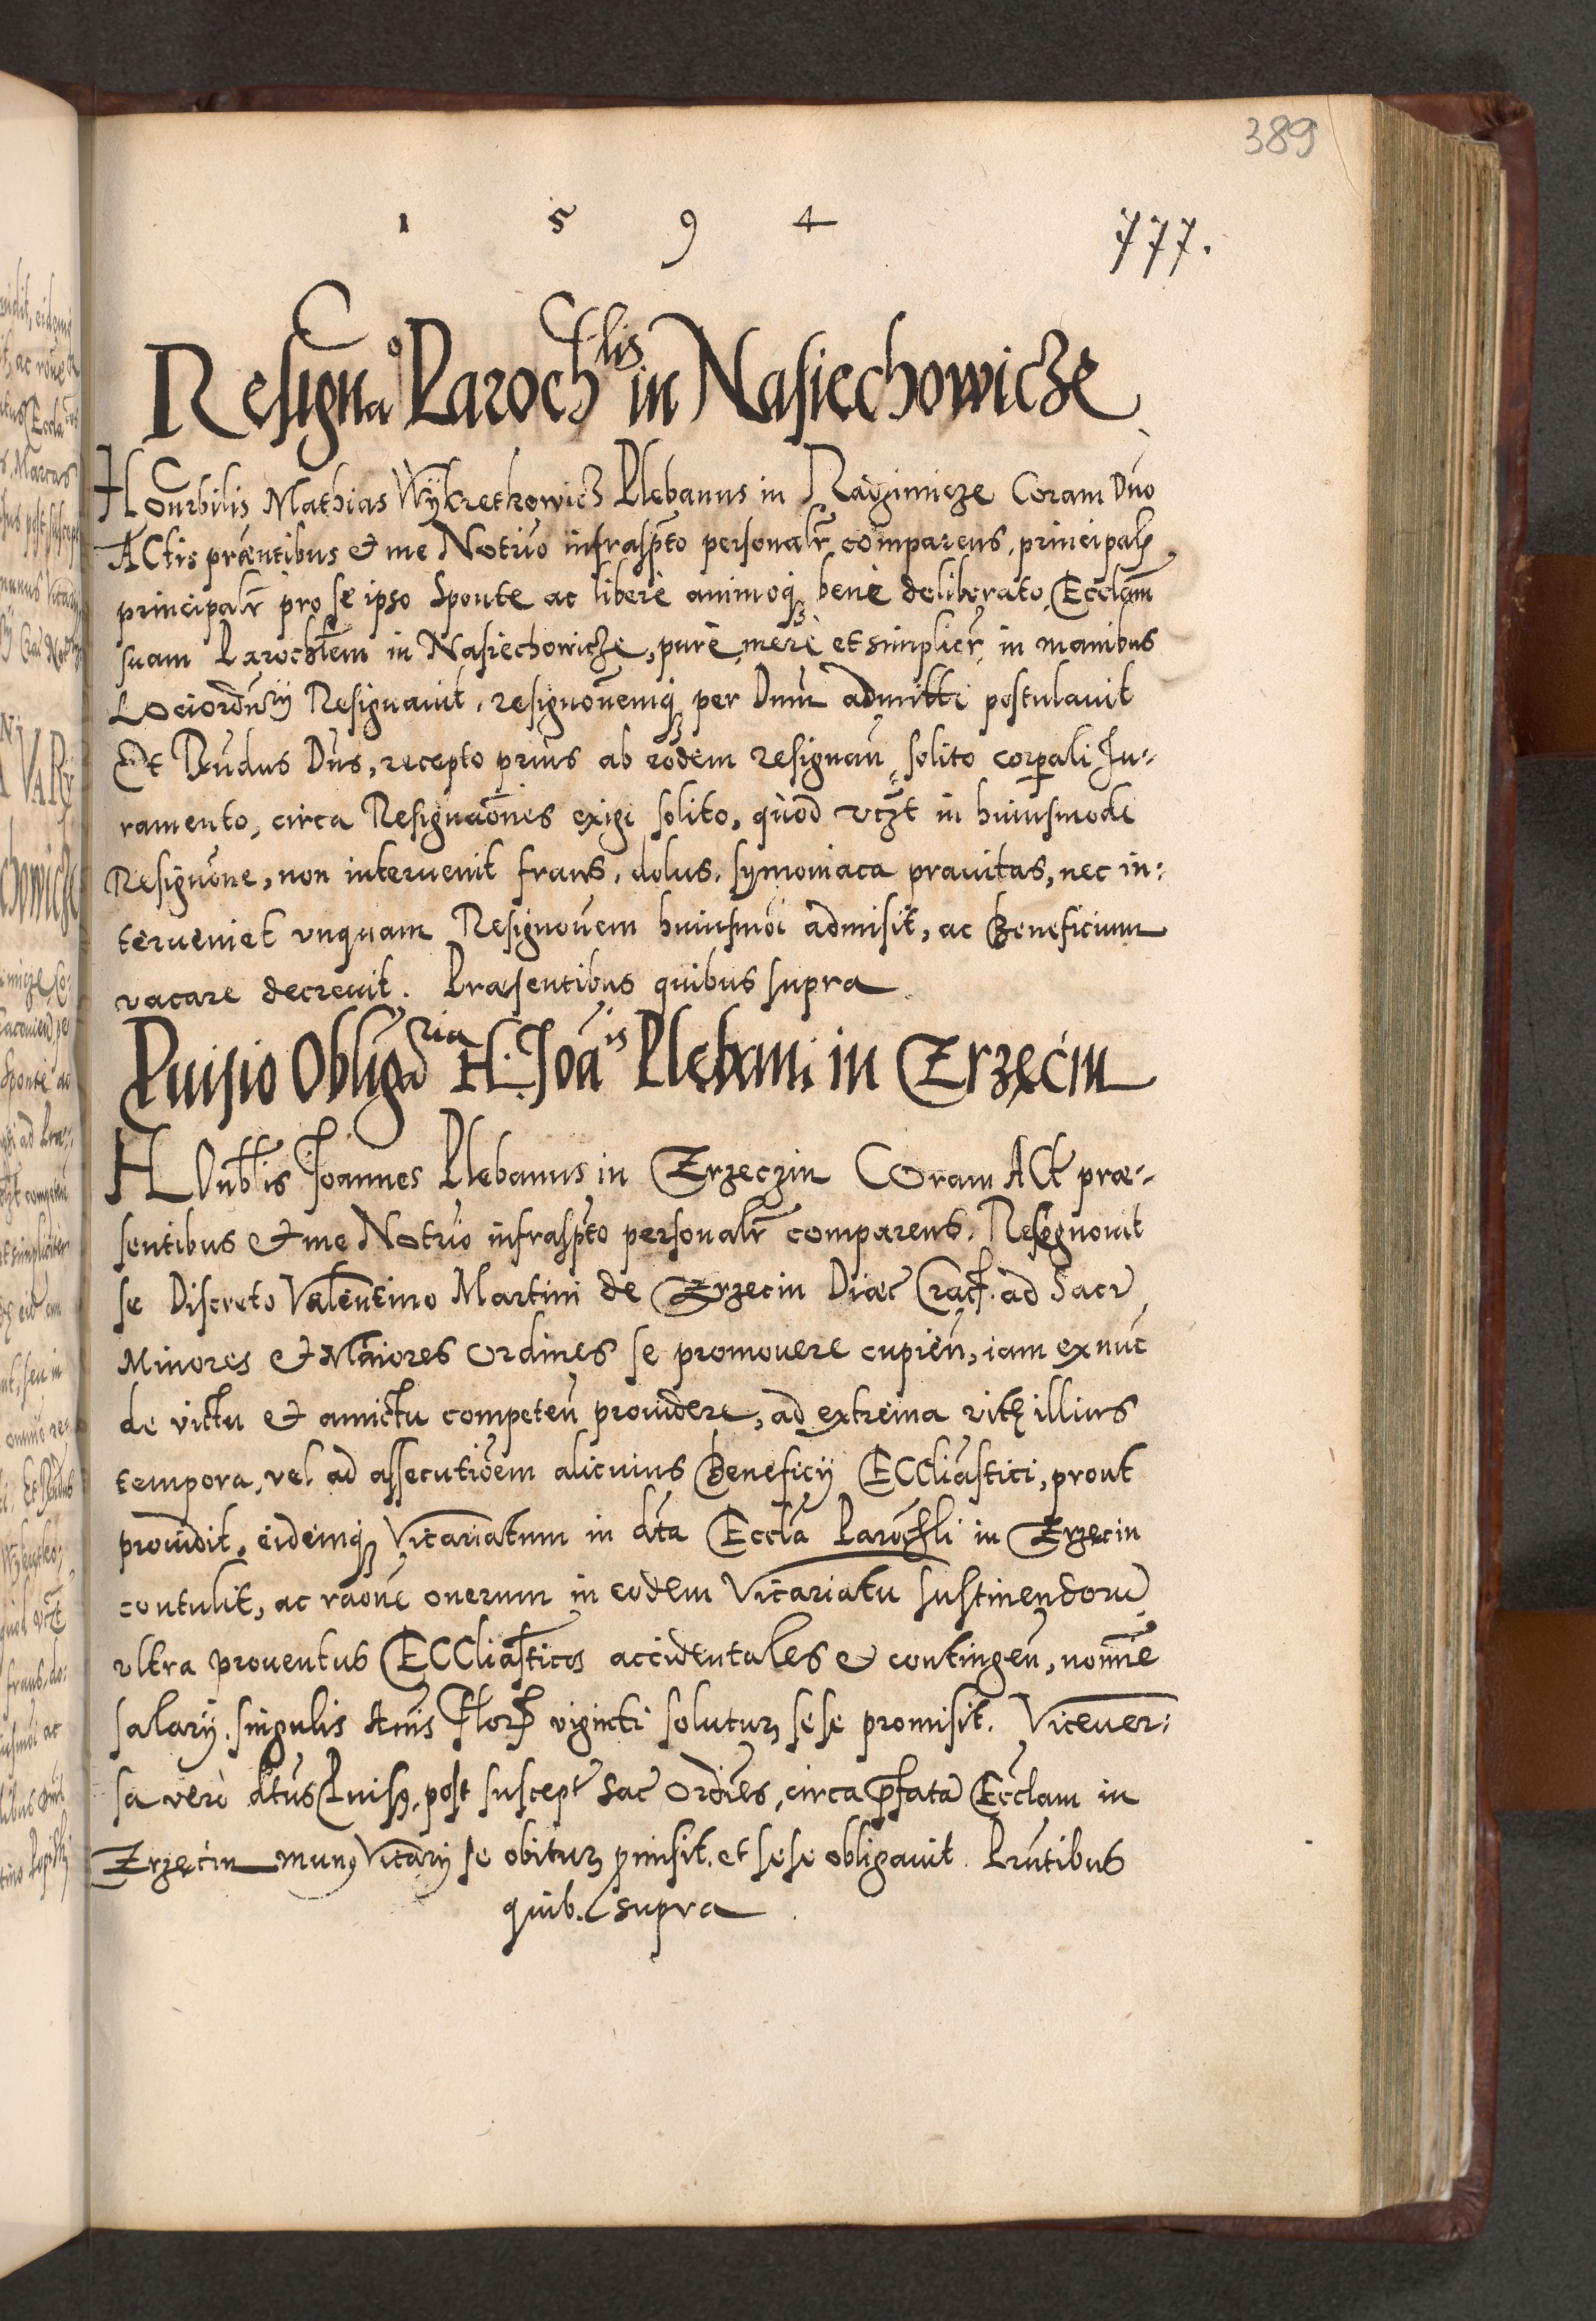 389
1 5 9 4
777.
Resigna° Paroch^lis in Nasiechowicze
HOnrbilis Mathias Wykretkowicz Plebanus in Racziminicze Coram Dno
ACtis præntibus & me Notrio infrascpto personalr comparens, principalr
principalr pro se ipso Sponte ac liberè animoq; benè deliberato, Ecclam
suam Parochlem in Nasiechowicze, purè, merè et simplicr, in manibus
Lociordnrij Resignavit, resignonemq; per Dnm admitti postulavit
Et Rndus Dns, recepto prius ab eodem resignan, solito corpali Ju-
ramento, circa Resignaones exigi solito, quod vczt in huiusmodi
Resignone, non intervenit fraus, dolus, symoniaca pravitas, nec in-
terveniet unquam Resignonem huiusmoi admisit, ac Beneficium
vacare decrevit. Præsentibus quibus supra
Pvisio Obliga^ria H. Joa^is Plebani in Erzęcin
HOnblis Joannes Plebanus in Erzeczin Coram Act præ-
sentibus & me Notrio infrascpto personalr comparens, Resignovit
se Discreto Valentino Martini de Erzecin Diæc Crac. ad Sacr
Minores & Maiores Ordines se promovere cupien, iam ex nuc
de victu & amictu competen providere, ad extrema vitę illius
tempora, vel ad assecutioem alicuius Beneficij ECCliastici, prout
providit, eidemq; Vicariatum in dta Eccla Parochli in Erzecin
contulit, ac raone onerum in eodem Vicariatu sustinendoru
ultra proventus ECCliasticos accidentales & contingen, nomine
salarij, singulis Anis Flor viginti soluturz sese promisit. Vicever-
sa verò dtus Pvisg, post suscept Sac Ordies, circa pfata Ecclam in
Erzęcin mung Vicarij se obiturz pmisit, et sese obligavit Prntibus
quib. supra